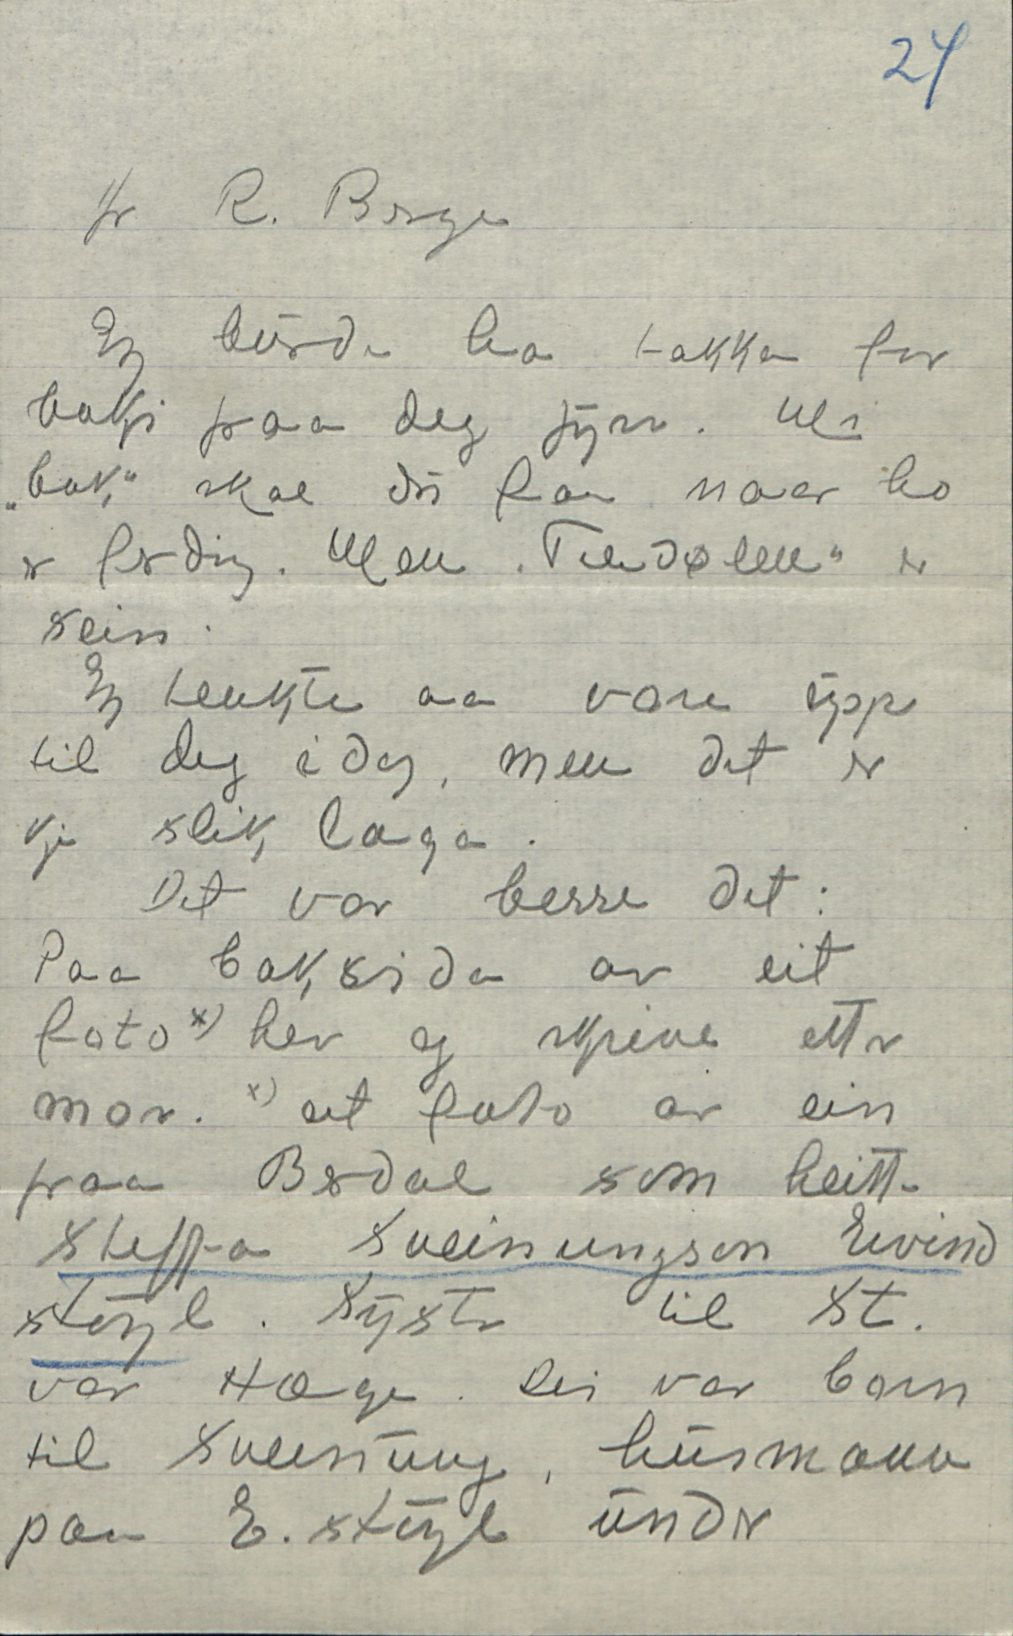 24
Hr R. Berge
Eg burde ha takka for
boki fraa deg fyrr. Mi
"bok" skal du faa naar ho
er ferdig. Men "Teledølen" er
sein.
Eg tenkte aa vore uppe
til deg idag, men det er
kje slik laga.
Det var berre det:
Paa baksida av eit
foto x) hev eg skrive etter
mor. x) eit foto av ein
fraa Bødal som heitte
Steffa Sveinungson Eivind
støyl. Syster til St.
var Hæge. Dei var born
til Sveinung, husmann
paa E. støyl under